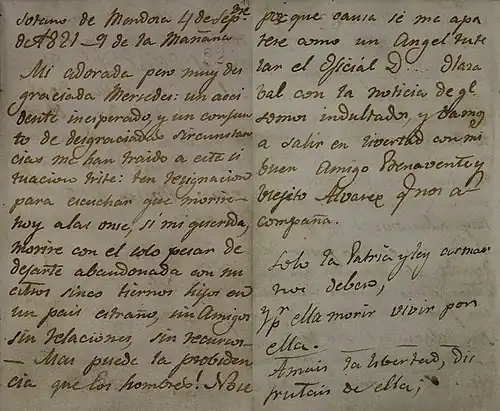 Sotano de Mendosa 4 de Sepbre
de 1821 - 9 de la Mañana
Mi adorada pero muy des
graciada Mersedes: un acci
dente inesperado, y un conjun
to de desgraciadas sircunstan
cias me han traido a esta si
tuacion triste: ten resignacion
para escuchar que morire
hoy a las onse, si mi querida,
morire con el solo pesar de
dejarte abandonada con nu
estros sinco tiernos hijos en
un pais estraño, sin Amigos
sin relaciones, sin recursos
- Mas puede la probiden
cia que los hombres! No se
por que causa se me apa
rese como un Angel tute
lar el Oficial D... Olaza
bal con la noticia de q.
somos indultados, y vamos
a salir en livertad con mi
buen Amigo Benavente y
viejito Alvarez q. nos a-
compaña.
Solo la Patria y ley arma
nos debero,
y pr ella morir vivir por
ella.
Amais la libertad, dis
frutais de ella;